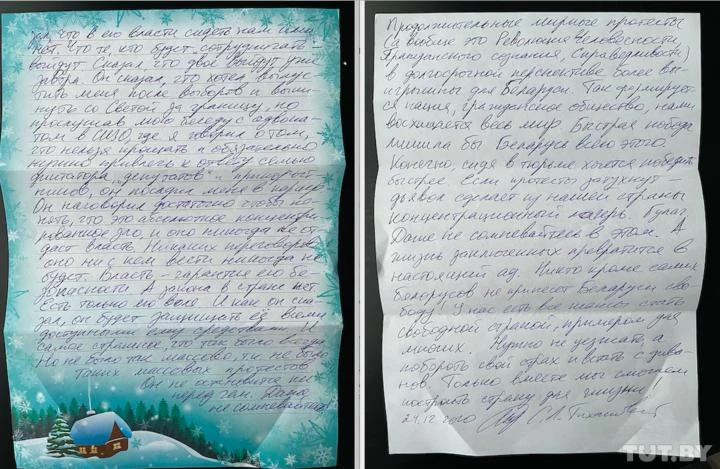 зал, что в его власти сидеть нам или
нет. Что те, кто будет сотрудничать –
выйдут. Сказал, что двое выйдут уже
завтра. Он сказал, что хотел выпус-
тить меня после выборов и выки-
нуть со Светой за границу, но
прослушав мою беседу с адвока-
том в СИЗО, где я говорил о том,
что нельзя прощать и обязательно
нужно привлечь к ответу семью
диктатора, депутатов и
он посадил меня в карцер.
Он наговорил достаточно чтобы по-
нять, что это абсолютное концентри-
рованное зло, и оно никогда не от-
даст власть. Никаких переговоров
оно ни с кем вести никогда не
будет. Власть – гарантия его бе-
зопасности. А закона в стране нет.
Есть только его воля. И как он ска-
зал, он будет защищать её всеми
доступными ему средствами. И
самое страшное, что так было всегда.
Но не было так массово, т.к. не было
таких массовых протестов.
Он не остановится ни
перед чем. Даже
не сомневайтесь!
Продолжительные мирные протесты
(а вообще это Революция Человечности,
Гражданского сознания, Справедливости)
в долгосрочной перспективе более вы-
игрышны для Беларуси. Так формирует-
ся нация, гражданское общество, нами
восхищается весь мир. Быстрая победа
лишила бы Беларусь всего этого.
Конечно, сидя в тюрьме хочется победить
быстрее. Если протесты затухнут –
дьявол сделает из нашей страны
концентрационный лагерь. Гулаг.
Даже не сомневайтесь в этом. А
жизнь заключенных превратится в
настоящий ад. Никто кроме самих
белорусов не принесет Беларуси сво-
боду! У нас есть все шансы стать
свободной страной, примером для
многих. Нужно не угасать, а
побороть свой страх и встать с дива-
нов. Только вместе мы сможем
построить страну для жизни!
24.12.2020 С.Л. Тихановский
TUT.BY